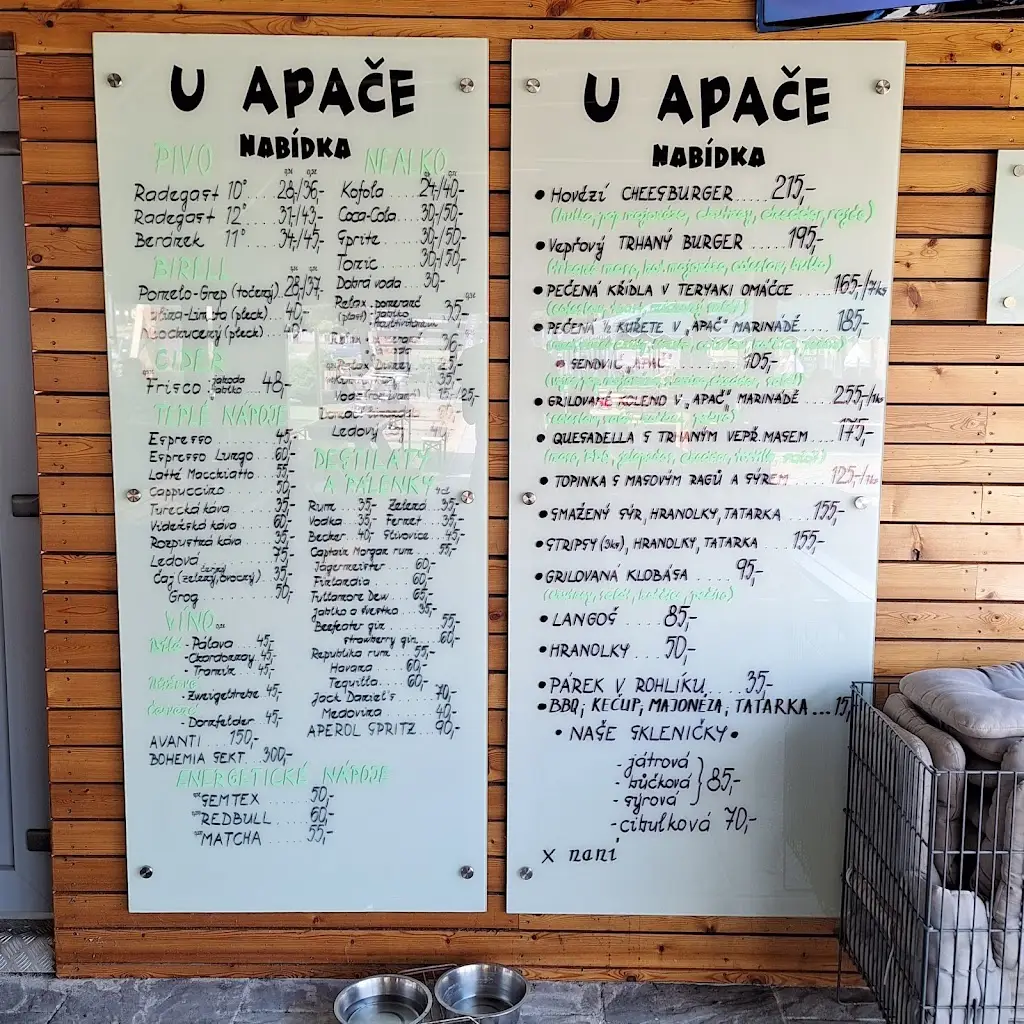 U APAČE
NABÍDKA
PIVO
Radegast 10° ... 28,-/36,-
Radegast 12° ... 31,-/43,-
Beránek 11° ... 34,-/45,-
BIRELL
Pomelo-Grep (točený) 28,-/37,-
(plech) 40,-
(plech) 40,-
CIDER
Frisco - jahoda jablko 48,-
TEPLÉ NÁPOJE
Espresso ... 45,-
Espresso Lungo ... 60,-
Latté Macchiatto ... 55,-
Cappuccino ... 50,-
Turecká káva ... 35,-
Vídeňská káva ... 60,-
Rozpustná káva ... 35,-
Ledová ... 75,-
Čaj (zelený, černý, ovocný) ... 35,-
Grog ... 50,-
VÍNO
Bílé - Pálava ... 45,-
- Chardonnay ... 45,-
- Tramín ... 45,-
Růžové
- Zweigeltrebe 45,-
Červené
- Dornfelder ... 45,-
AVANTI ... 150,-
BOHEMIA SEKT ... 300,-
NEALKO
Kofola ... 24,-/40,-
Coca-Cola ... 30,-/50,-
Sprite ... 30,-/50,-
Tonic ... 30,-/50,-
Dobrá voda ... 30,-
Relax - pomeranč 35,-
(plast) - jablko
Ledový
DESTILÁTY
A PÁLENKY
Rum ... 35,- Zelená ... 35,-
Vodka ... 35,- Fernet ... 35,-
Becher ... 40,- Slivovice ... 45,-
Captain Morgan rum ... 55,-
Jägermeister ... 60,-
Finlandia ... 60,-
Tullamore Dew ... 65,-
Jablko a švestka ... 35,-
Beefeater gin ... 55,-
strawberry gin ... 60,-
Republika rum ... 55,-
Havana ... 60,-
Tequilla ... 60,-
Jack Daniel's ... 70,-
Medovina ... 40,-
APEROL SPRITZ ... 90,-
ENERGETICKÉ NÁPOJE
SEMTEX ... 50,-
REDBULL ... 60,-
MATCHA ... 55,-
U APAČE
NABÍDKA
• Hovězí CHEESBURGER ... 215,-
• Vepřový TRHANÝ BURGER ... 195,-
• PEČENÁ KŘÍDLA V TERYAKI OMÁČCE 165,-/7ks
• PEČENÁ ½ KUŘETE V „APAČ" MARINÁDĚ ... 185,-
• SENDVIČ „APAČ" ... 105,-
• GRILOVANÉ KOLENO V „APAČ" MARINÁDĚ ... 255,-/1ks
• QUESADELLA S TRHANÝM VEPŘ.MASEM ... 175,-
• TOPINKA S MASOVÝM RAGŮ A SÝREM ... 125,-/
• SMAŽENÝ SÝR, HRANOLKY, TATARKA ... 155,-
• STRIPSY (3ks), HRANOLKY, TATARKA ... 155,-
• GRILOVANÁ KLOBÁSA ... 95,-
• LANGOŠ ... 85,-
• HRANOLKY ... 50,-
• PÁREK V ROHLÍKU ... 35,-
• BBQ, KEČUP, MAJONÉZA, TATARKA ... 15,
• NAŠE SKLENIČKY •
- játrová
- bůčková } 85,-
- sýrová
- cibulková 70,-
x není